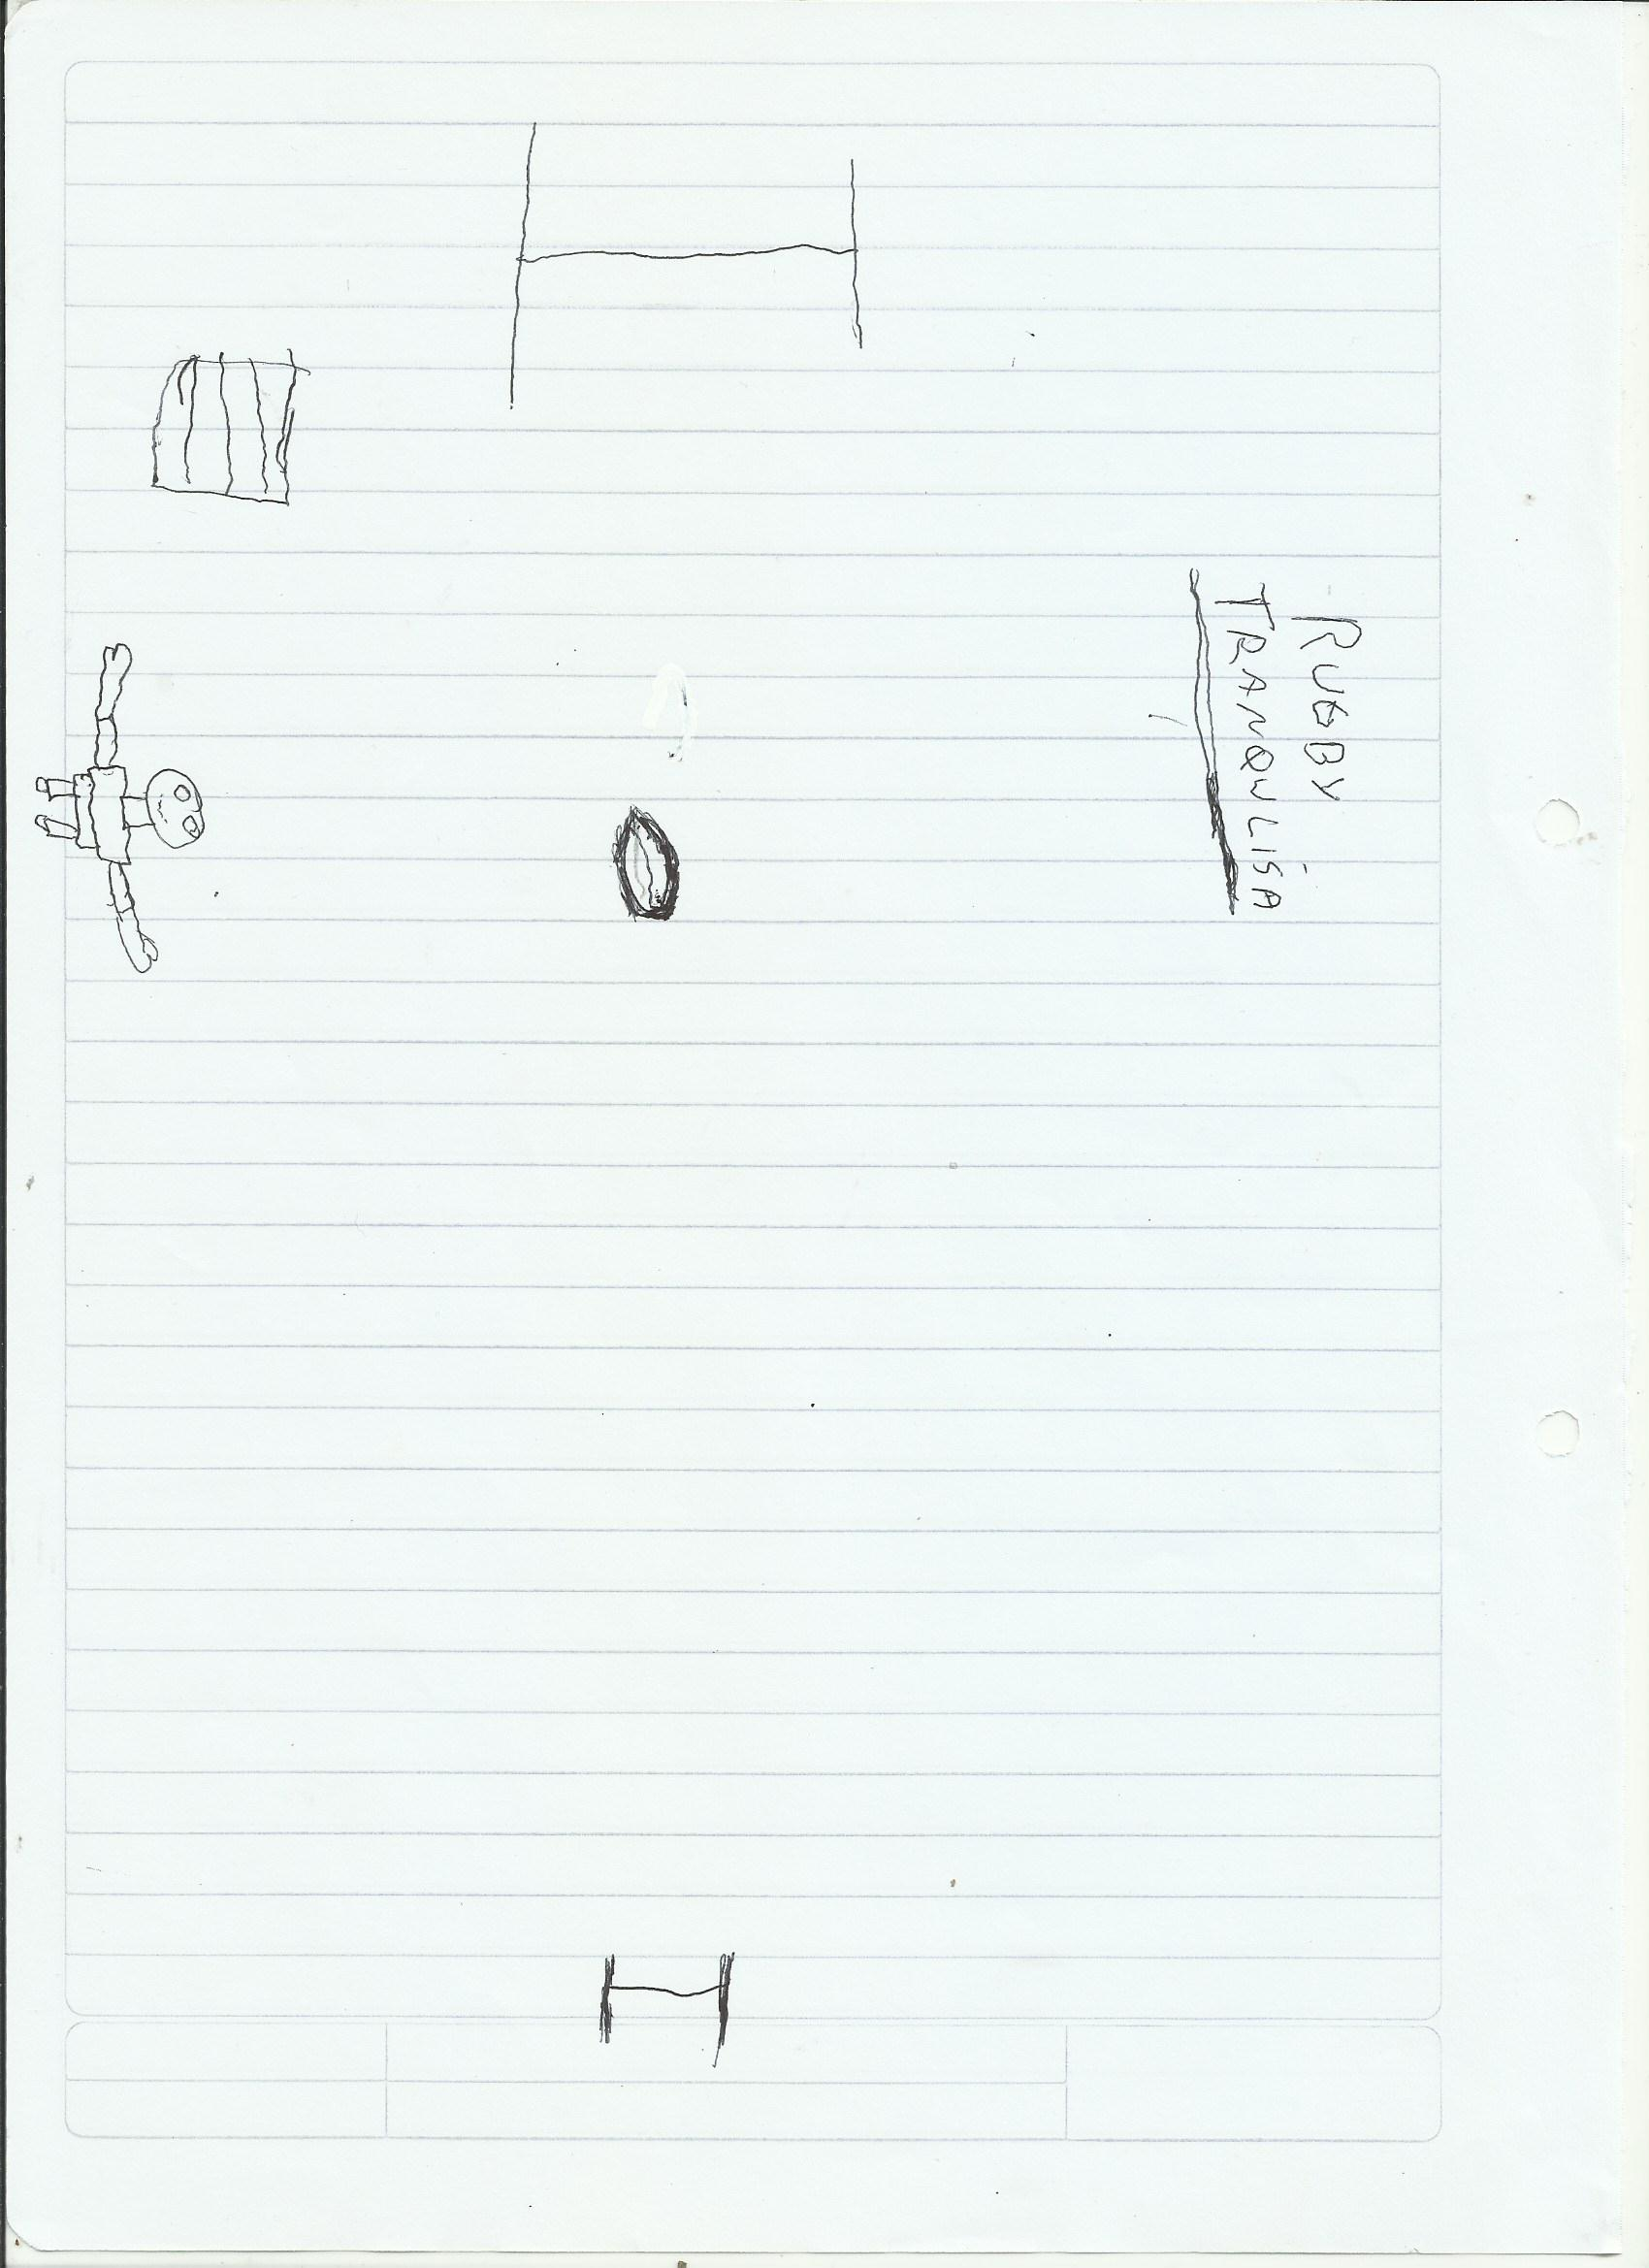 RUGBY
TRANQULISA